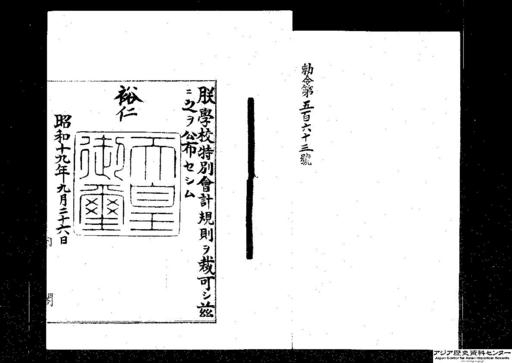 勅令第五百六十三號
朕學校特別會計規則ヲ裁可シ茲
ニ之ヲ公布セシム
裕仁
天皇
御璽
昭和十九年九月二十六日
アジア歴史資料センター
Japan Center for Asian Historical Records